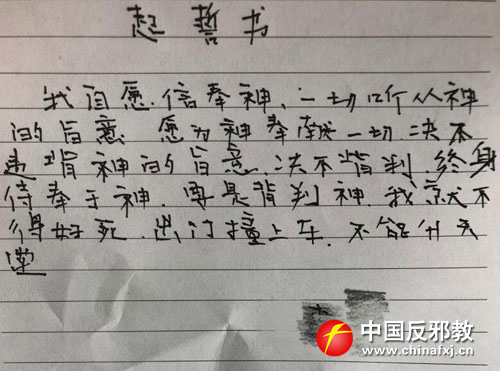 起誓书
我自愿信奉神、一切听从神
的旨意 愿为神奉献一切 决不
违背神的旨意 决不背判 终身
侍奉于神 要是背判神 我就不
得好死 出门撞上车 不能升天
堂
中国反邪教
www.chinafxj.cn